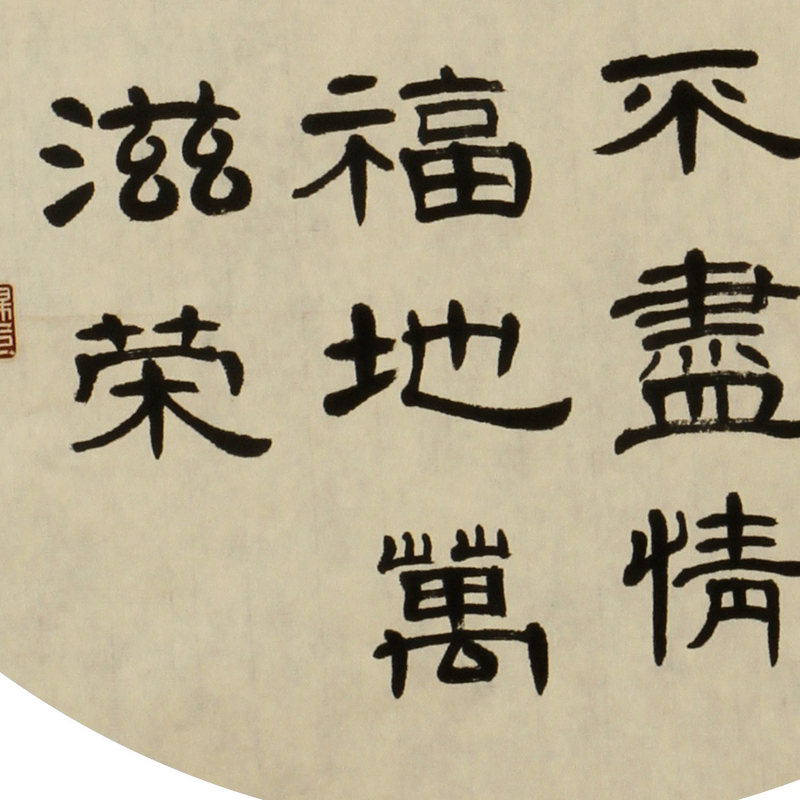 不盡情
福地萬
滋荣